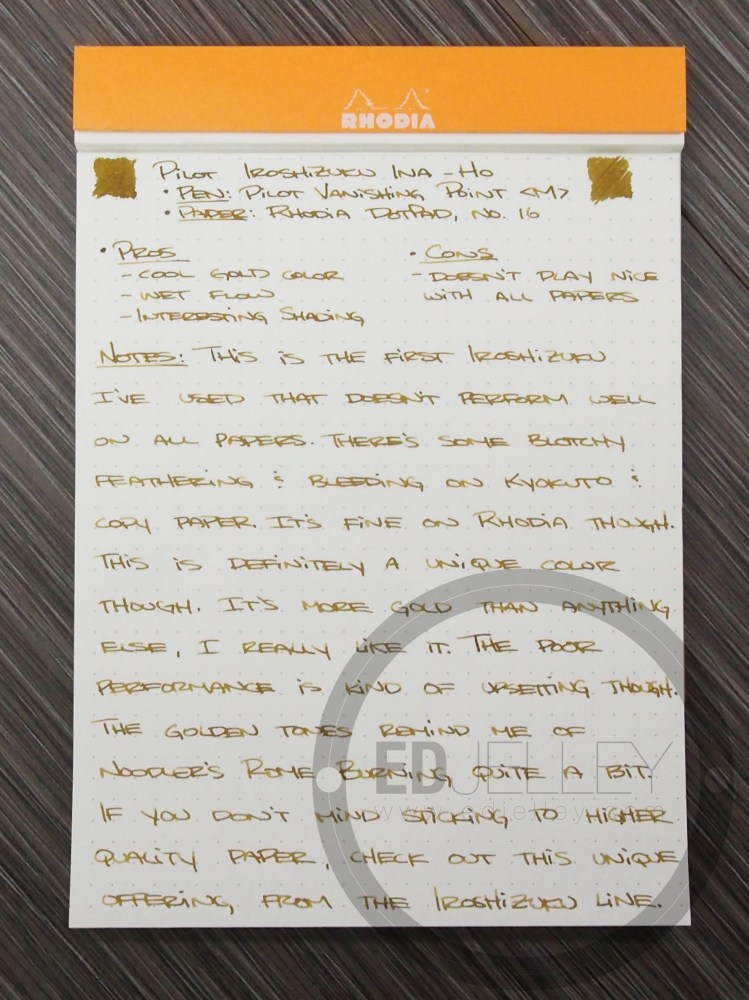 RHODIA
PILOT IROSHIZUKU INA-HO
• PEN: PILOT VANISHING POINT <M>
• PAPER: RHODIA DOTPAD, NO. 16
• PROS
- COOL GOLD COLOR
- WET FLOW
- INTERESTING SHADING
• CONS
- DOESN'T PLAY NICE
WITH ALL PAPERS
NOTES: THIS IS THE FIRST IROSHIZUKU
I'VE USED THAT DOESN'T PERFORM WELL
ON ALL PAPERS. THERE'S SOME BLOTCHY
FEATHERING & BLEEDING ON KYOKUTO &
COPY PAPER. IT'S FINE ON RHODIA THOUGH.
THIS IS DEFINITELY A UNIQUE COLOR
THOUGH. IT'S MORE GOLD THAN ANYTHING
ELSE, I REALLY LIKE IT. THE POOR
PERFORMANCE IS KIND OF UPSETTING THOUGH.
THE GOLDEN TONES REMIND ME OF
NOODLER'S ROME BURNING QUITE A BIT.
IF YOU DON'T MIND STICKING TO HIGHER
QUALITY PAPER, CHECK OUT THIS UNIQUE
OFFERING FROM THE IROSHIZUKU LINE.
EDJELLEY
www.edjelley.com